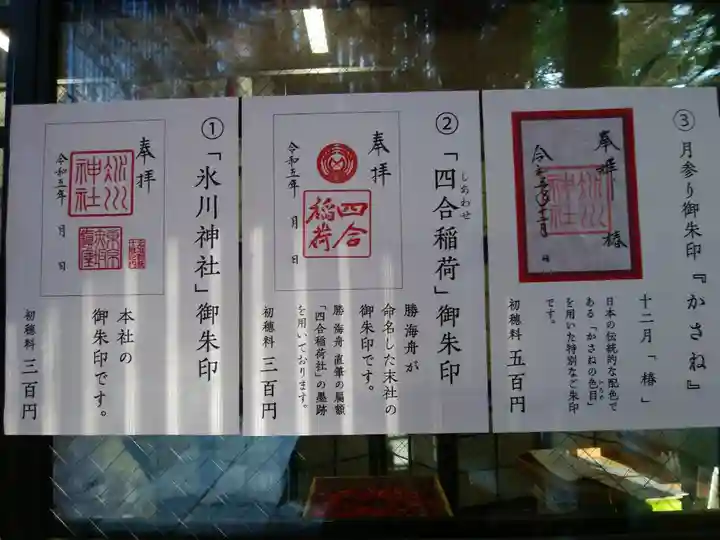 ①「氷川神社」御朱印
奉拝
氷川
神社
令和五年 月 日
本社の
御朱印です。
初穂料 三百円
②「四合稲荷」御朱印
しあわせ
奉拝
四合
稲荷
令和五年 月 日
勝 海舟が
命名した末社の
御朱印です。
勝 海舟 直筆の扁額
「四合稲荷社」の墨跡
を用いております。
初穂料 三百円
③ 月参り御朱印『かさね』
奉拝
椿
氷川
神社
十二月「椿」
日本の伝統的な配色で
ある「かさねの色目」
を用いた特別なご朱印
です。
初穂料 五百円